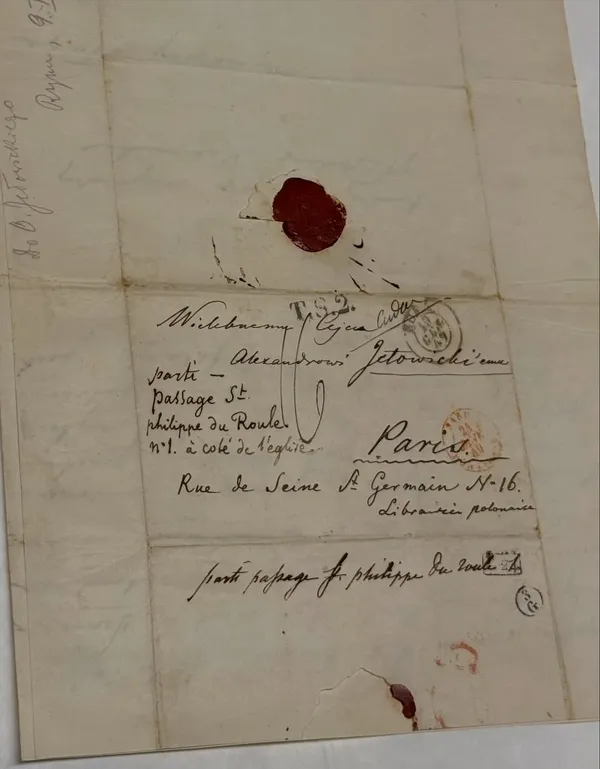 Do O. Jełowickiego
Rzym, 9.
T.S.2.
Wielebnemu Ojcu
Alexandrowi Jełowickiemu
parti —
passage St.
philippe du Roule.
n°1. à coté de l'église
Paris.
Rue de Seine St Germain No 16.
Librairie polonaise
parti passage St. philippe du roule 1.